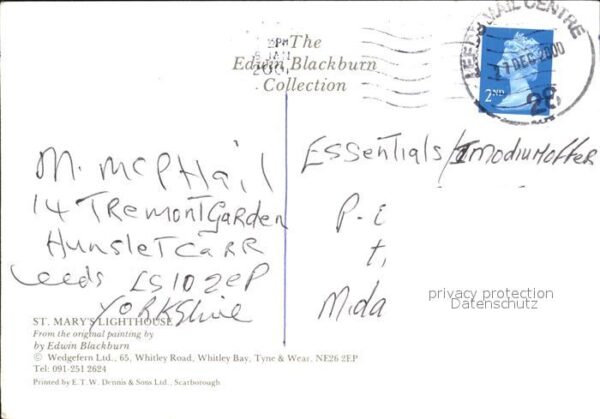 The
Edwin Blackburn
Collection
2001
LEEDS MAIL CENTRE
17 DEC 2000
28
2ND
Essentials/Imodium offer
M. McPHail
14 TRemont Garden
HunsleT CaRR
Leeds LS10 2eP
YoRKshire
P.
t,
Mida
privacy protection
Datenschutz
ST. MARY'S LIGHTHOUSE
From the original painting by
by Edwin Blackburn
© Wedgefern Ltd., 65, Whitley Road, Whitley Bay, Tyne & Wear, NE26 2EP
Tel: 091-251 2624
Printed by E. T. W. Dennis & Sons Ltd., Scarborough